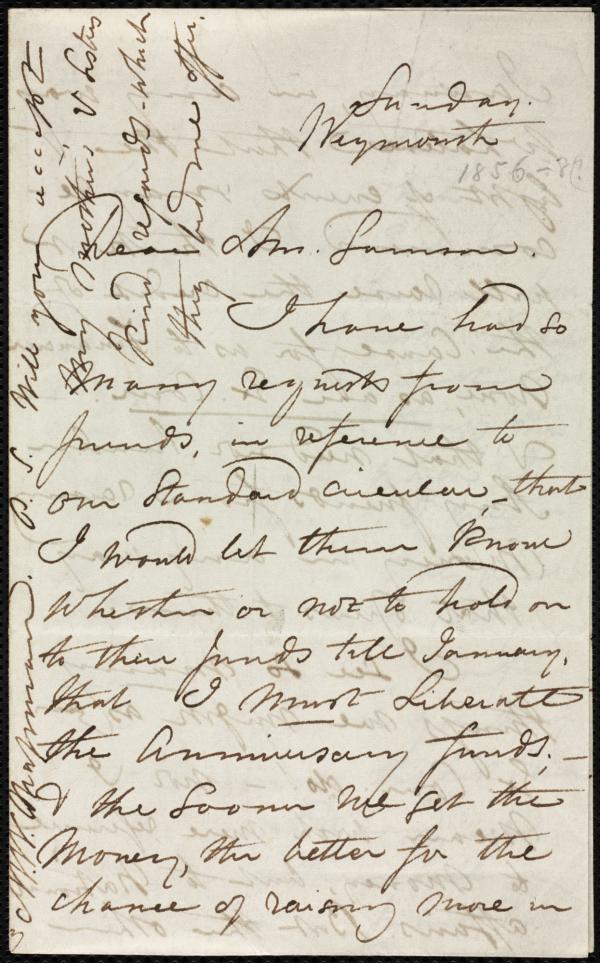 Sunday.
Weymouth
1856-8?
Dear Mr. Samson.
I have had so
many requests from
friends, in reference to
our Standard circular, that
I would let them know
whether or not to hold on
to their funds till January,
that I must liberate
the Anniversary funds; -
& the sooner we get the
money, the better for the
chance of raising more in
M. W. Chapman. P. S. Will you accept
my mother's & sisters
kind regards which
they bid me offer.